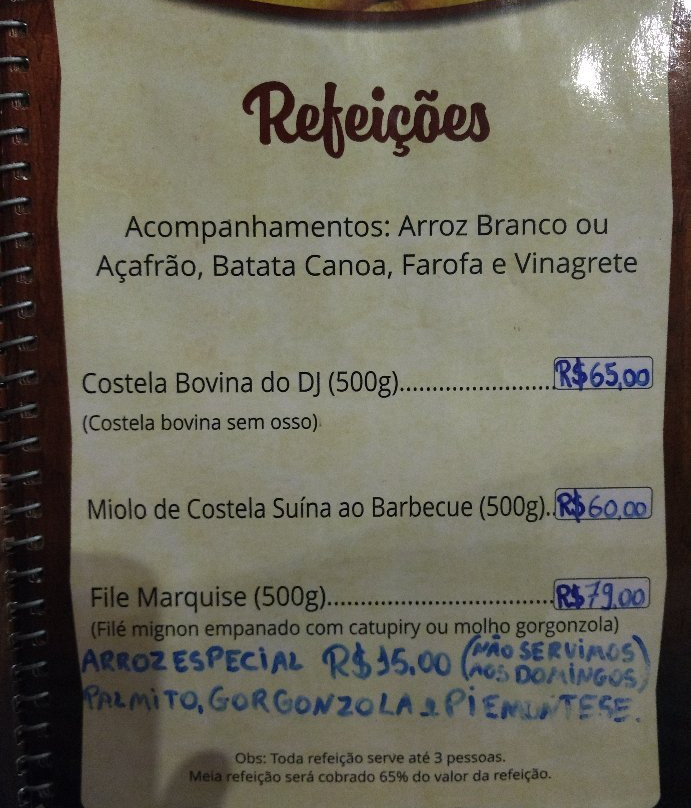 Refeições
Acompanhamentos: Arroz Branco ou
Açafrão, Batata Canoa, Farofa e Vinagrete
Costela Bovina do DJ (500g)........................R$65,00
(Costela bovina sem osso)
Miolo de Costela Suína ao Barbecue (500g)..R$60,00
File Marquise (500g)...................................R$79,00
(Filé mignon empanado com catupiry ou molho gorgonzola)
ARROZ ESPECIAL R$15,00 (NÃO SERVIMOS
AOS DOMINGOS)
PALMITO, GORGONZOLA e PIEMONTESE.
Obs: Toda refeição serve até 3 pessoas.
Meia refeição será cobrado 65% do valor da refeição.